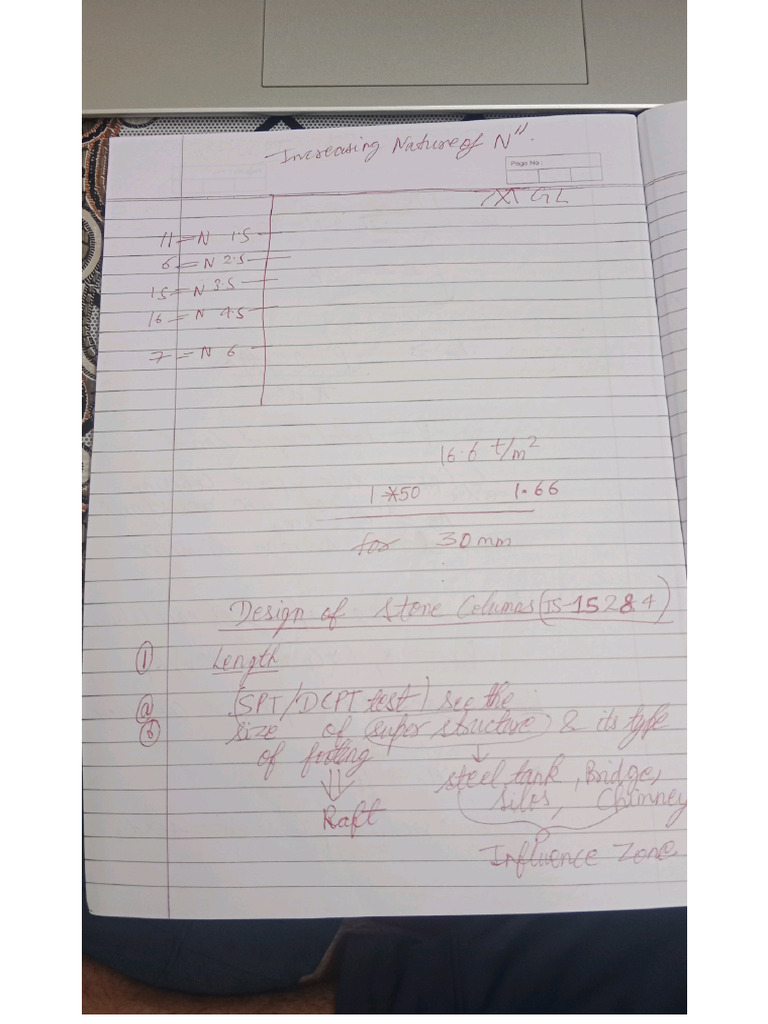 Increasing Nature of N".
Page No.:
GL
11 = N 1.5
6 = N 2.5
15 = N 3.5
16 = N 4.5
7 = N 6
16.6 t/m²
1*50 1.66
for 30mm
Design of Stone Columns (IS-15284)
① Length
ⓐ (SPT/DCPT test) see the
ⓑ size of (super structure) & its type
of footing
steel tank, Bridge,
silos, Chimney
Raft
Influence Zone